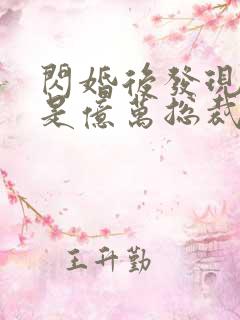 閃婚後發現
是億萬總裁
王升勤